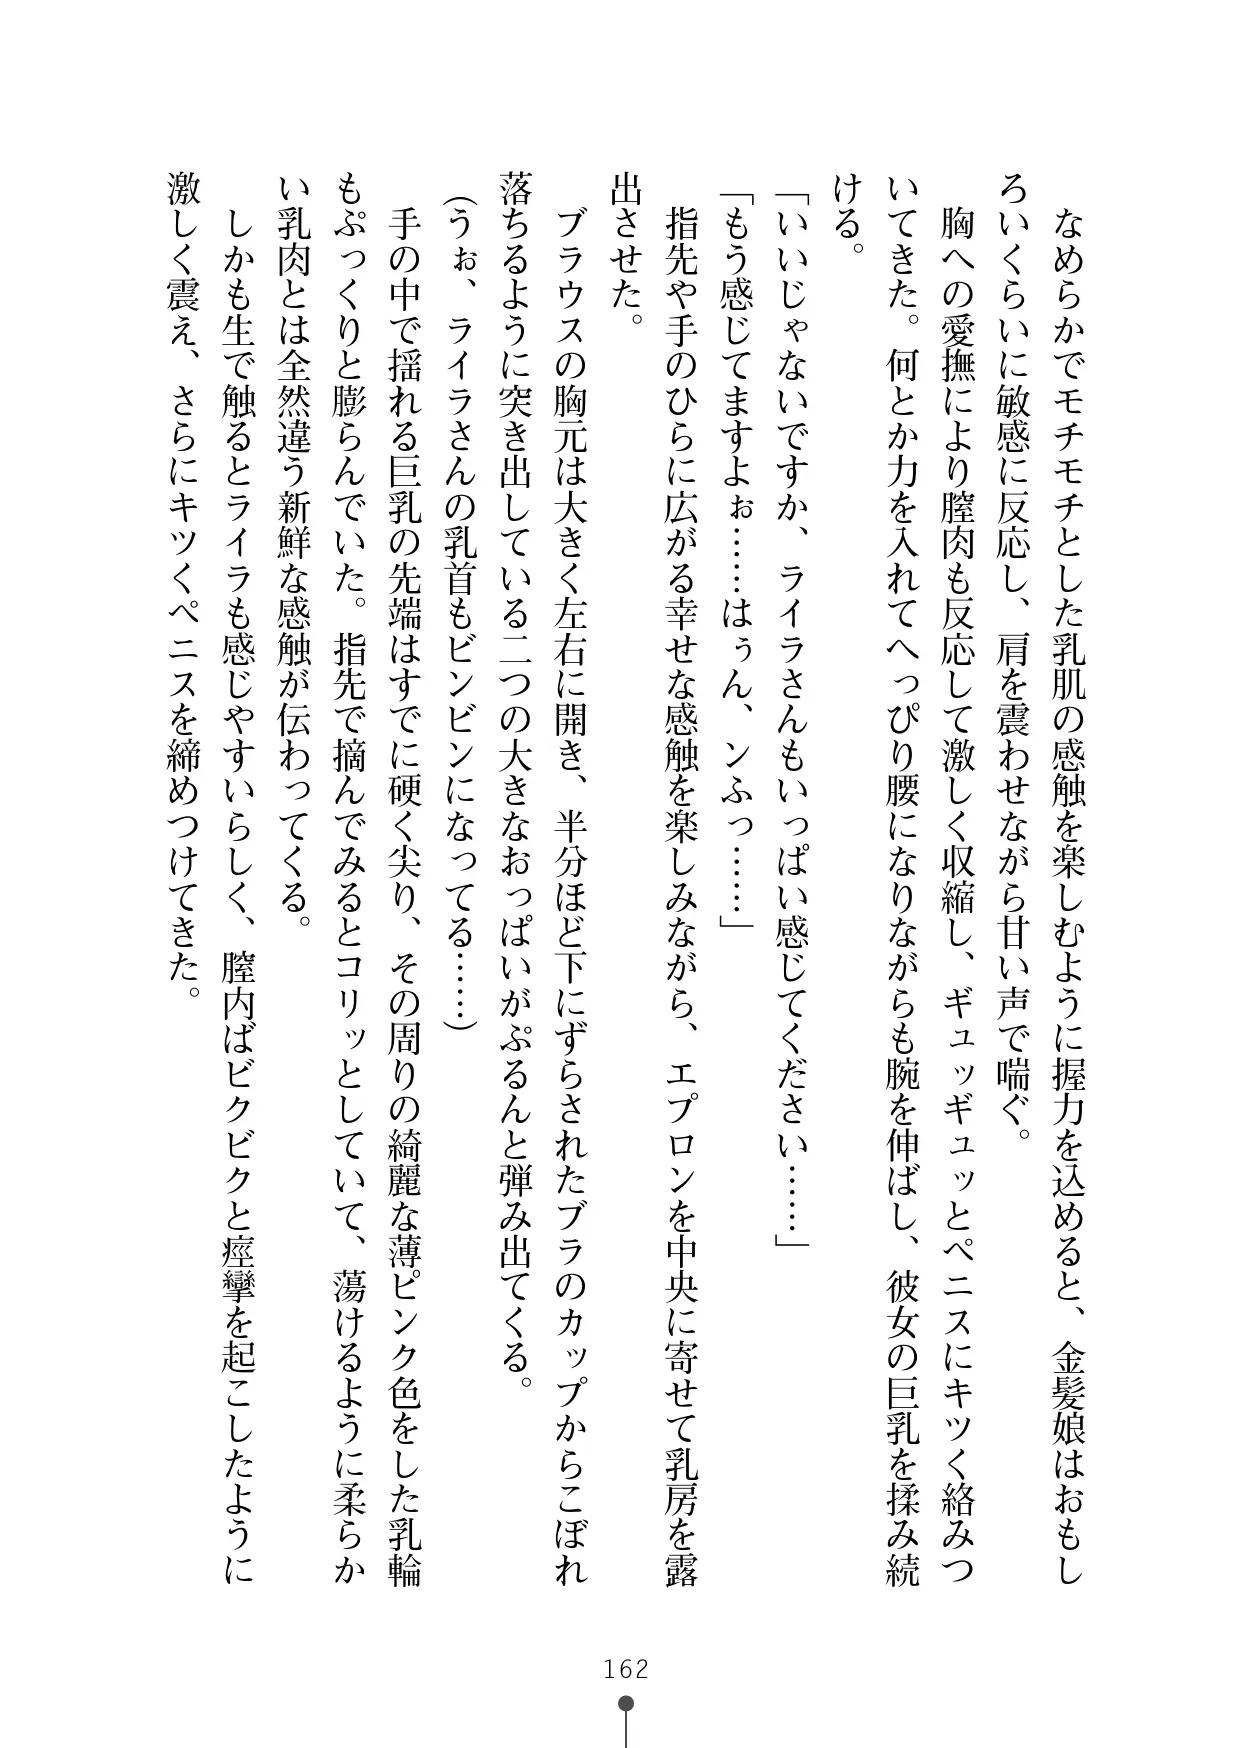 なめらかでモチモチとした乳肌の感触を楽しむように握力を込めると、金髪娘はおもし
ろいくらいに敏感に反応し、肩を震わせながら甘い声で喘ぐ。
胸への愛撫により膣肉も反応して激しく収縮し、ギュッギュッとペニスにキツく絡みつ
いてきた。何とか力を入れてへっぴり腰になりながらも腕を伸ばし、彼女の巨乳を揉み続
ける。
「いいじゃないですか、ライラさんもいっぱい感じてください……」
「もう感じてますよぉ……はぅん、ンふっ……」
指先や手のひらに広がる幸せな感触を楽しみながら、エプロンを中央に寄せて乳房を露
出させた。
ブラウスの胸元は大きく左右に開き、半分ほど下にずらされたブラのカップからこぼれ
落ちるように突き出している二つの大きなおっぱいがぷるんと弾み出てくる。
（うぉ、ライラさんの乳首もビンビンになってる……）
手の中で揺れる巨乳の先端はすでに硬く尖り、その周りの綺麗な薄ピンク色をした乳輪
もぷっくりと膨らんでいた。指先で摘んでみるとコリッとしていて、蕩けるように柔らか
い乳肉とは全然違う新鮮な感触が伝わってくる。
しかも生で触るとライラも感じやすいらしく、膣内ばビクビクと痙攣を起こしたように
激しく震え、さらにキツくペニスを締めつけてきた。
162